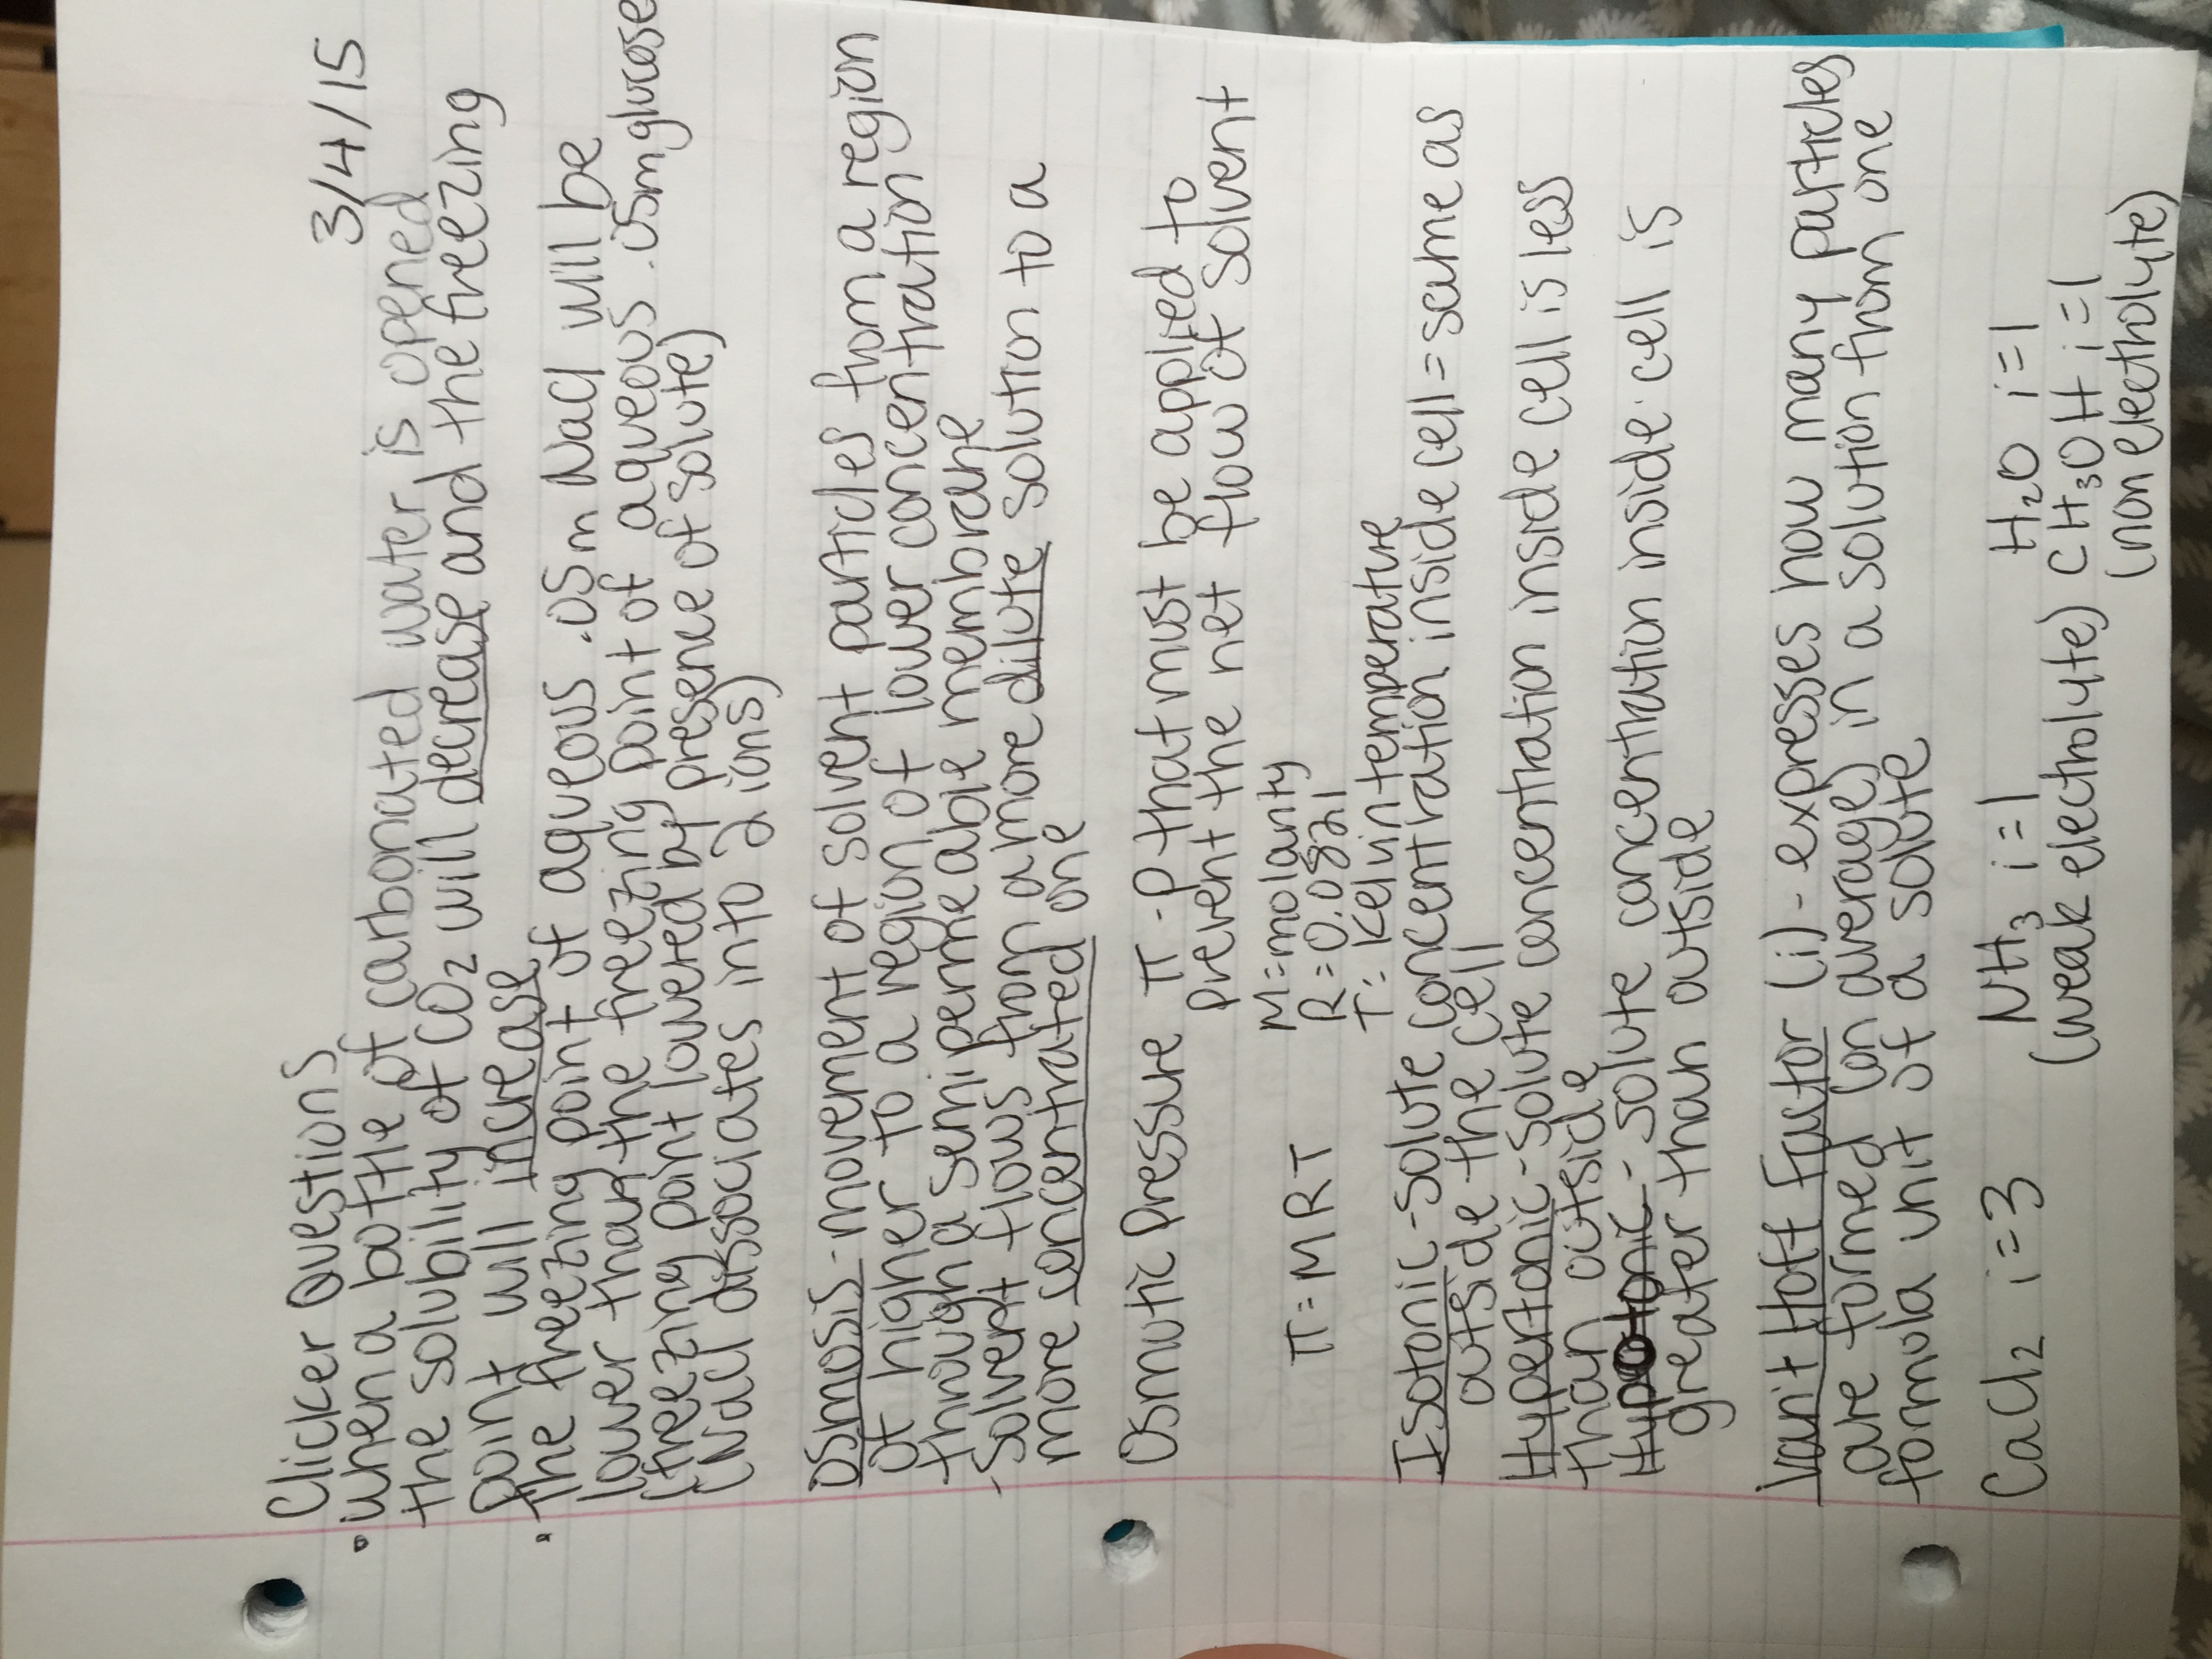 3/4/15
Clicker Questions
• when a bottle of carbonated water is opened
the solubility of CO₂ will decrease and the freezing
point will increase
• the freezing point of aqueous .05m NaCl will be
lower than the freezing point of aqueous .05m glucose
(freezing point lowered by presence of solute)
(NaCl dissociates into 2 ions)
Osmosis - movement of solvent particles from a region
of higher to a region of lower concentration
through a semipermeable membrane
- solvent flows from a more dilute solution to a
more concentrated one
Osmotic Pressure π - P that must be applied to
prevent the net flow of solvent
π = MRT
M = molarity
R = 0.0821
T = Kelvin temperature
Isotonic - solute concentration inside cell = same as
outside the cell
Hypertonic - solute concentration inside cell is less
than outside
Hypotonic - solute concentration inside cell is
greater than outside
Van't Hoff Factor (i) - expresses how many particles
are formed (on average) in a solution from one
formula unit of a solute
CaCl₂ i=3 NH₃ i=1 H₂O i=1
(weak electrolyte) CH₃OH i=1
(non electrolyte)